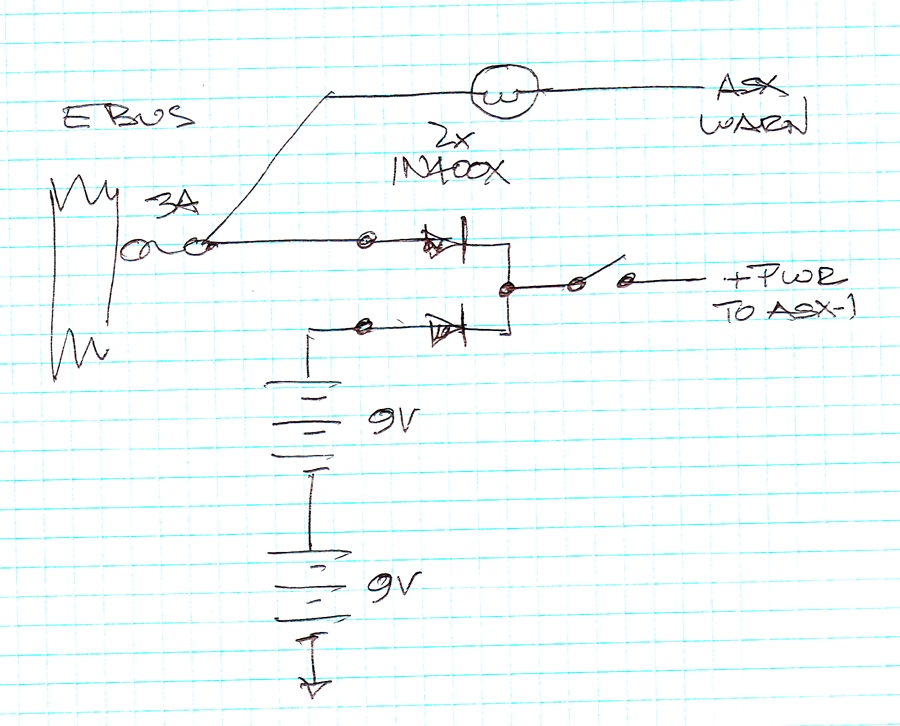 E BUS
3A
W
ASX
WARN
2X
1N400X
+PWR
TO ASX-1
9V
9V